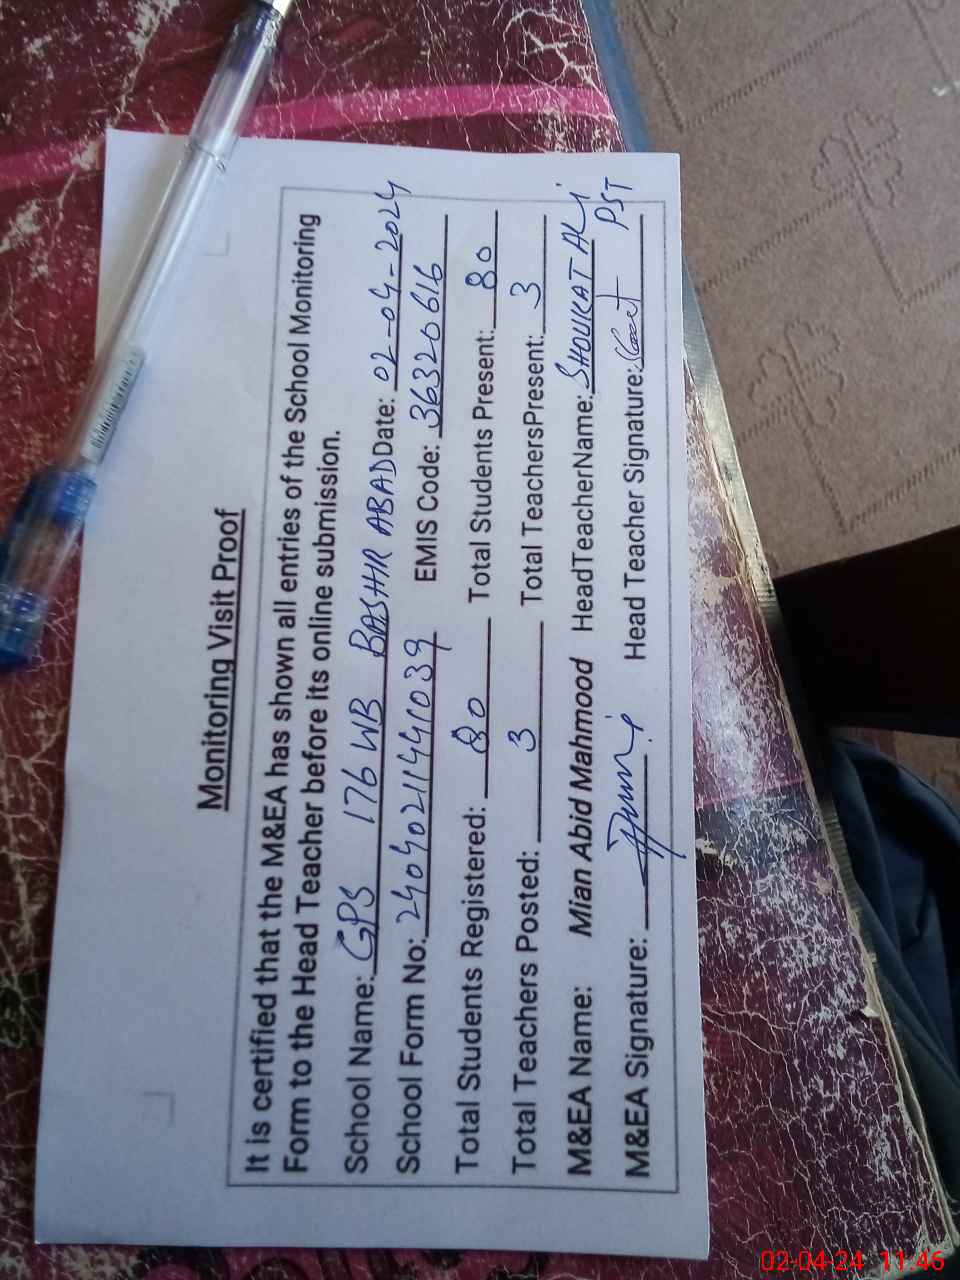 Monitoring Visit Proof
It is certified that the M&EA has shown all entries of the School Monitoring
Form to the Head Teacher before its online submission.
School Name: GPS 176 WB BASHIR ABAD Date: 02-04-2024
School Form No: 240402114441039 EMIS Code: 36320616
Total Students Registered: 80 Total Students Present: 80
Total Teachers Posted: 3 Total TeachersPresent: 3
M&EA Name: Mian Abid Mahmood HeadTeacherName: SHOUKAT ALi
M&EA Signature: Head Teacher Signature: PST
02-04-24 11:46